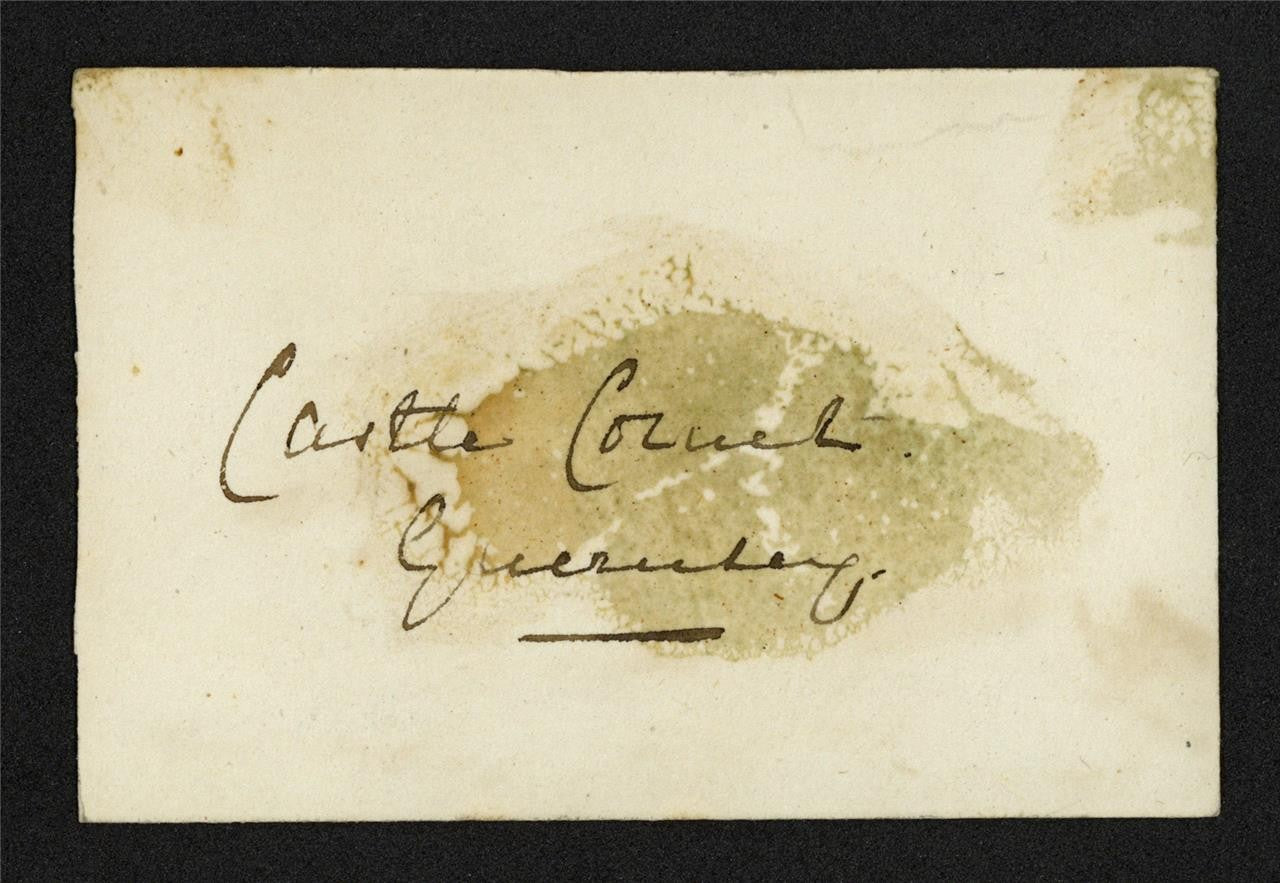 Castle Cornet.
Guernsey.